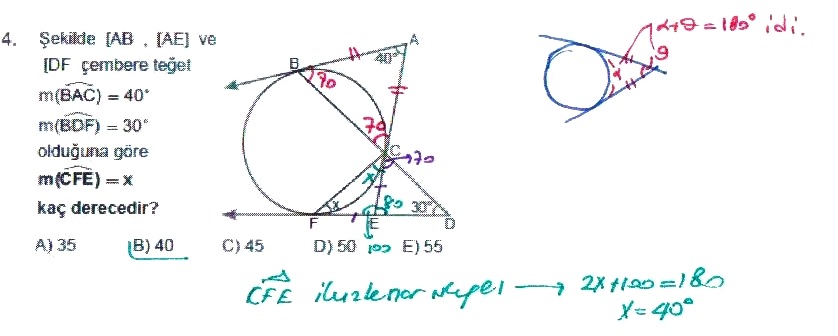 4. Şekilde [AB , [AE] ve
[DF çembere teğet
m(BAC) = 40°
m(BDF) = 30°
olduğuna göre
m(CFE) = x
kaç derecedir?
A) 35 B) 40 C) 45 D) 50 E) 55
A
40°
B
70
70
C
70
x
x
80
30°
F
E
D
100
α+θ=180° idi.
α
θ
CFE ikizkenar üçgen → 2x+100=180
x=40°